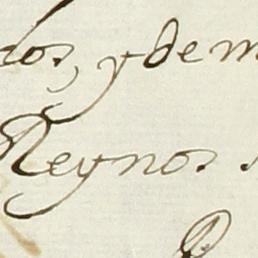 los, y de m
Reynos s